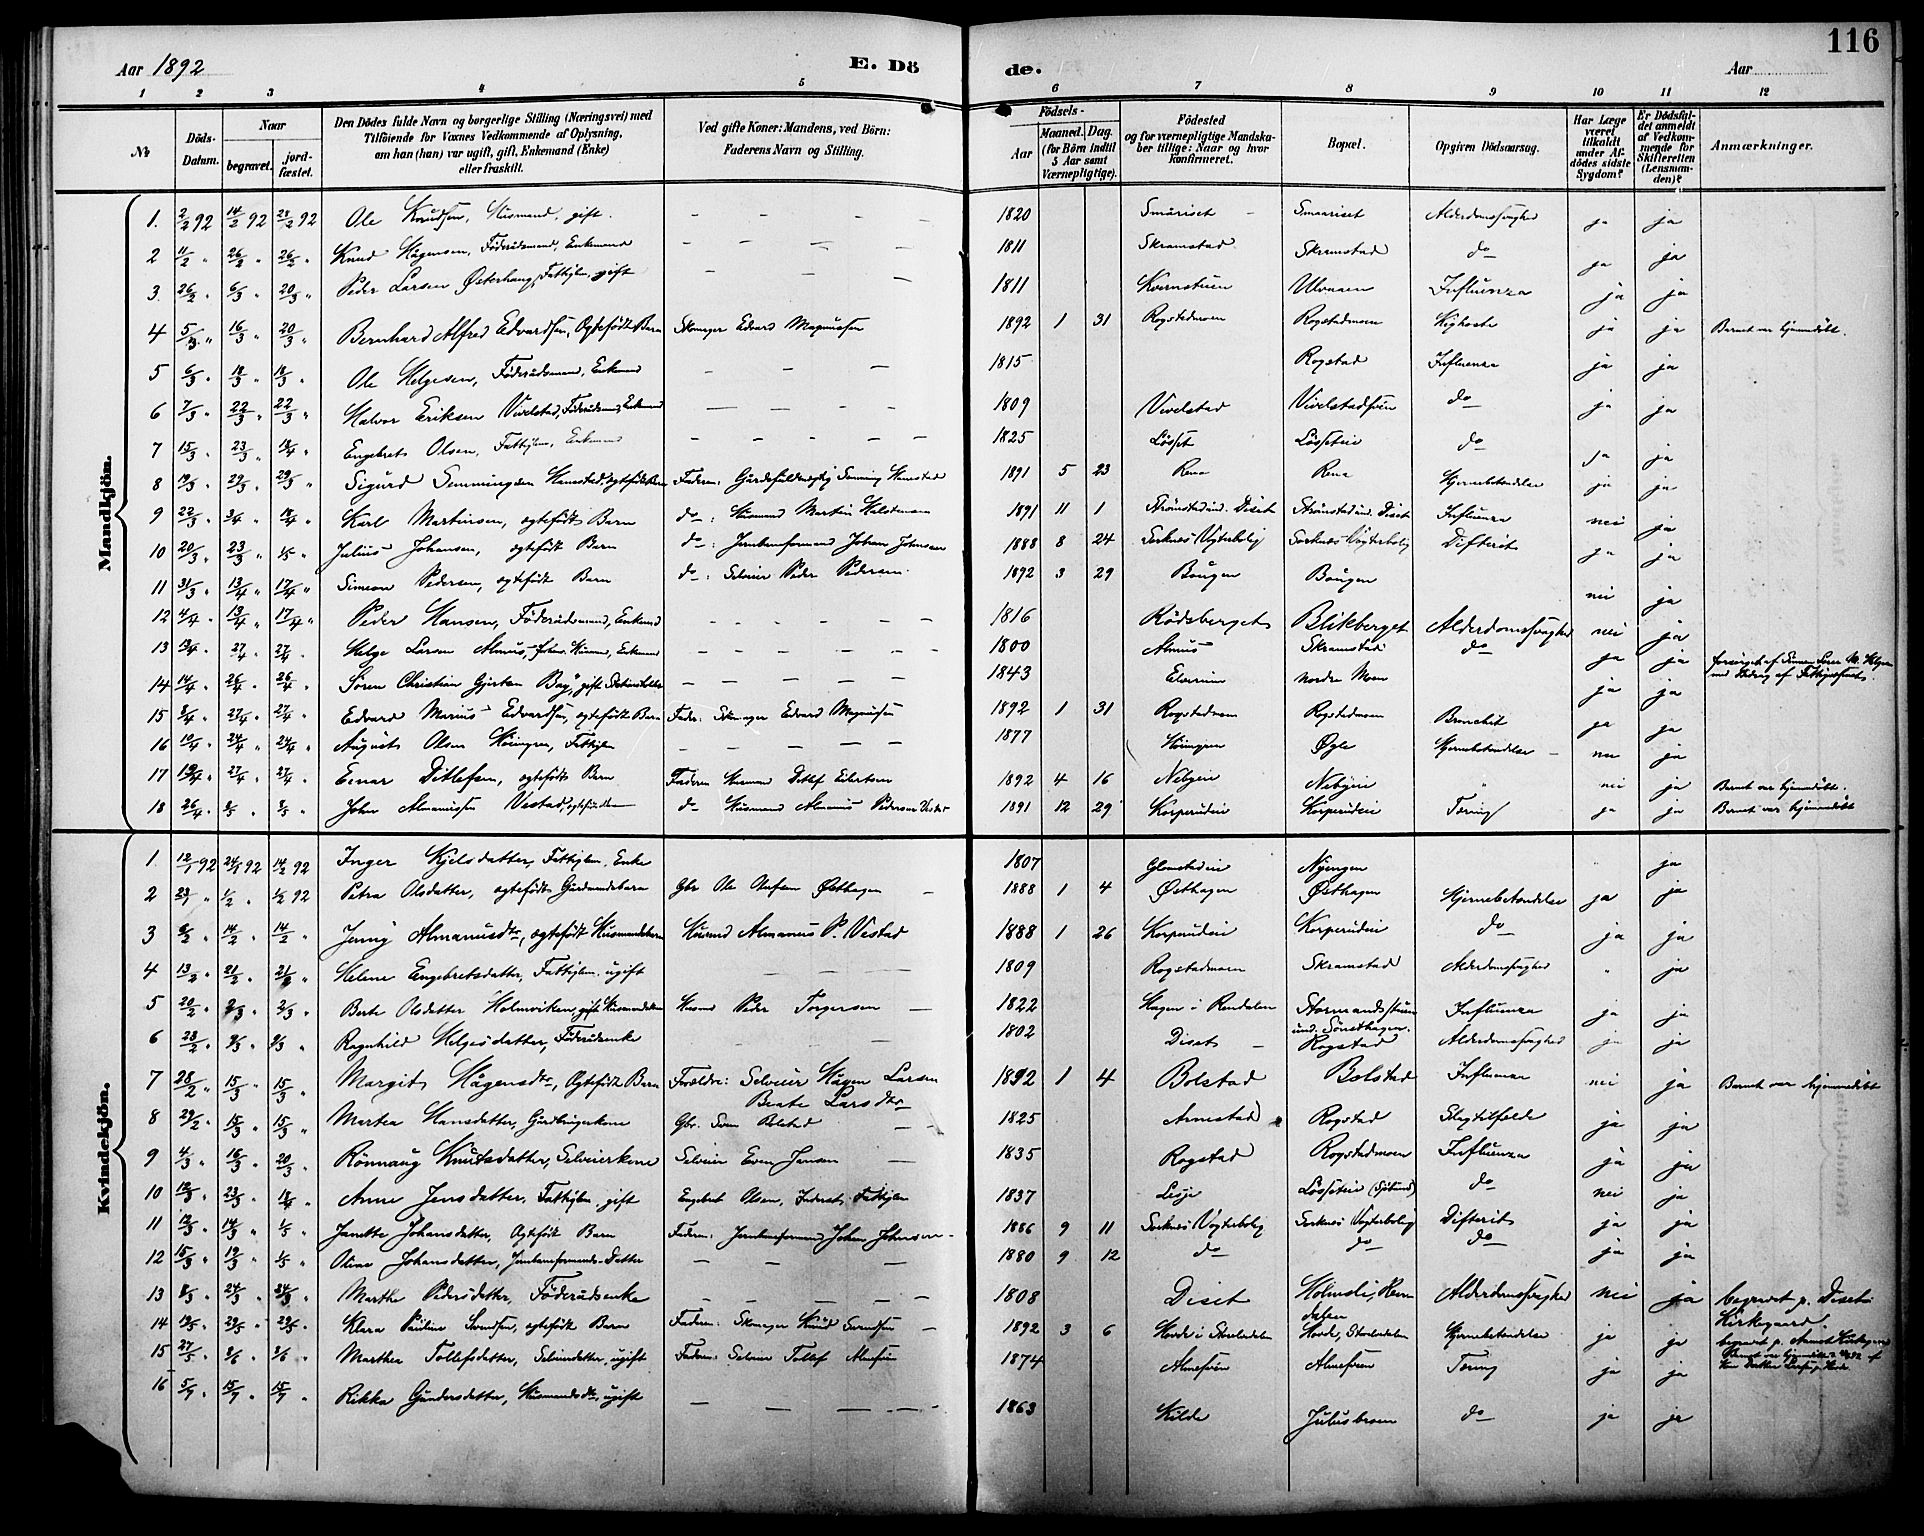 116
Aar 1892
E. Dö
de.
Aar
1 2 3 4 5 6 7 8 9 10 11 12
No
Döds-Datum.
Naar
begravet.
jord-fæstet.
Den Dödes fulde Navn og borgerlige Stilling (Næringsvei) med
Tilföiende for Voxnes Vedkommende af Oplysning,
om han (hun) var ugift, gift, Enkemand (Enke)
eller fraskilt.
Ved gifte Koner: Mandens, ved Börn:
Faderens Navn og Stilling.
Födsels-
Aar
Maaned. Dag.
(for Börn indtil
5 Aar samt
Værnepligtige).
Födested
og for værnepligtige Mandska-
ber tillige: Naar og hvor
konfirmeret.
Bopæl.
Opgiven Dödsaarsag.
Har Læge
været
tilkaldt
under Af-
dödes sidste
Sygdom?
Er Dödsfal-
det anmeldt
af Vedkom-
mende for
Skifteretten
(Lensman-
den)?
Anmærkninger.
Mandkjön.
1. 2/2 92 14/2 92 28/2 92 Ole Knudsen, Husmand, gift. 1820 Småriset Smaariset Alderdomssvaghed ja ja
2 11/2 " 26/2 " 26/2 " Knud Hågensen, Föderådsmand, Enkemand 1811 Skramstad Skramstad do ja ja
3. 26/2 " 6/3 " 20/3 " Peder Larsen Østerhaug, Fattiglem, gift 1811 Kvernstuen Ulvaaen Influenza ja ja
4 5/3 " 16/3 " 20/3 " Bernhard Alfred Edvardsen, Ægtefödt Barn Skomager Edvard Magnussen 1892 1 31 Rogstadmoen Rogstadmoen Kighoste ja ja Barnet var hjemmedöbt.
5 6/3 " 18/3 " 18/3 " Ole Helgesen, Föderådsmand, Enkemd 1815 Rogstad Influenza ja ja
6 7/3 " 22/3 " 22/3 " Halvor Eriksen Vivelstad, Föderådsmand, Enkemd 1809 Vivelstad Vivelstadsven do ja ja
7 15/3 " 23/3 " 18/4 " Engebret Olsen, Fattiglem, Enkemd 1825 Lösset Lösseteie do ja ja
8 19/3 " 29/3 " 29/3 " Sigurd Semmingsen Hanestad, ægtefödt Barn Faderen: Gårdsfuldmægtig Semming Hanestad 1891 5 23 Rena Rena Hjernebetændelse ja ja
9 22/3 " 3/4 " 18/4 " Karl Martinsen, ægtefödt Barn do: Husmand Martin Halstensen 1891 11 1 Strömstad und. Diset Strömstad und. Diset Influenza nei ja
10 20/3 " 23/3 " 1/5 " Julius Johansen, ægtefödt Barn do: Jernbaneformand Johan Johnsen 1888 8 24 Sorknes Vogterbolig Sorknes Vogterbolig Difterit ja ja
11 31/3 " 13/4 " 17/4 " Simeon Pedersen, ægtefödt Barn do: Selveier Peder Pedersen. 1892 3 29 Bougen Bougen nei ja
12 4/4 " 13/4 " 17/4 " Peder Hansen, Föderådsmand, Enkemd 1816 Rödsberget Blikberget Alderdomssvaghed nei ja
13 13/4 " 27/4 " 27/4 " Helge Larsen Almus, forhen. Husmd, Enkemand 1800 Almus Skramstad do ja ja forsörget af Sönnen Lars M. Helgesen med Bidrag af Fattigvæsenet.
14 14/4 " 26/4 " 26/4 " Sören Christian Gjertsen Bay, gift 1843 Elverum nordre Moen ja ja
15 8/4 " 27/4 " 27/4 " Edvard Marius Edvardsen, ægtefödt Barn Fader: Skomager Edvard Magnussen 1892 1 31 Rogstadmoen Rogstadmoen Bronchit ja ja
16 10/4 " 24/4 " 24/4 " August Olsen Höingen, Fattiglem 1877 Höingen Øgle Hjernebetændelse nei ja
17 19/4 " 27/4 " 27/4 " Einar Ditlefsen, ægtefödt Barn Faderen Husmand Ditlef Eilertsen 1892 4 16 Nebyeie Nebyeie " nei ja Barnet var hjemmedöbt.
18 26/4 " 8/5 " 8/5 " John Almanussen Vestad, ægtefödt Barn do Husmand Almanus Pedersen Vestad 1891 12 29 Korperudeie Korperudeie Tæring ja ja Barnet var hjemmedöbt
Kvindekjön.
1. 12/1 92 24/1 92 14/2 92 Inger Kjelsdatter, Fattiglem, Enke 1807 Glomstadeie Nyengen " ja
2 23/1 " 1/2 " 1/2 92 Petra Olsdatter, ægtefödt Gårdmandsbarn Gbr Ole Olufsen Østhagen 1888 1 4 Østhagen Østhagen Hjernebetændelse ja ja
3 8/2 " 14/2 " 14/2 " Jenny Almanusdtr, ægtefödt Husmandsbarn Husmd Almanus P. Vestad 1888 1 26 Korperudeie Korperudeie do ja ja
4 13/2 " 21/2 " 21/2 " Helene Engebretsdatter, Fattiglem, ugift 1809 Rogstadmoen Skramstad Alderdomssvaghed " ja
5 20/2 " 2/3 " 2/3 " Berte Olsdatter Holmviken, gift Husmandskone Husmd Peder Torgersen 1822 Hagen i Rendalen Stormandsstuen und. Sønsthagen. Influenza ja ja
6 23/2 " 9/3 " 9/3 " Ragnhild Helgesdatter, Föderådsenke 1802 Diset Rogstad Alderdomssvaghed ja ja
7 28/2 " 15/3 " 15/3 " Margit Hågensdtr, Ægtefödt Barn Forældre: Selveier Hågen Larsen Beate Larsdtr 1892 1 4 Bolstad Bolstad Influenza nei ja Barnet var hjemmedöbt
8 29/2 " 15/3 " 15/3 " Martea Hansdatter, Gårdbrugerkone Gbr. Sven Bolstad 1825 Arnestad Rogstad Slagtilfælde ja ja
9 4/3 " 16/3 " 20/3 " Rönnaug Knutsdatter, Selveierkone Selveier Even Jensen 1835 Rogstad Rogstadmoen Influenza ja ja
10 12/3 " 23/3 " 18/4 " Anne Jensdatter, Fattiglem, gift Engebret Olsen, Fattiglem 1837 Lesje Lösseteie do nei ja
11 12/3 " 14/3 " 1/5 " Janette Johansdatter, Ægtefödt Barn Faderen: Jernbaneformand Johan Johnsen 1886 9 11 Sorknes Vogterbolig Sorknes Vogterbolig Difterit ja ja
12 15/3 " 19/3 " 1/5 " Oline Johansdatter, Jernbaneformands-Datter 1880 9 12 do do do ja ja
13 8/3 " 24/3 " 24/3 " Marthe Pedersdatter, Föderådsenke 1808 Diset Holmsli, Rendalen Alderdomssvaghed nei ja begravet p. Diset Kirkegaard.
14 19/5 " 29/5 " 29/5 " Klara Pauline Svendsen, ægtefödt Barn Faderen: Skomager Knud Svendsen 1892 3 6 Horde i Storelvdalen Horde, Storelvdalen Hjernebetændelse ja ja begravet p. Aamot Kirkegaard
15 27/5 " 2/6 " 2/6 " Marthea Tollefsdatter, Selveierdatter, ugift Faderen: Selveier Tollef Almeseie 1874 Almeseie Almeseie Tæring ja ja
16 5/7 " 15/7 " 15/7 " Rikka Gundersdatter, Husmandsdtr, ugift 1863 Kilde Julusbroen do ja ja